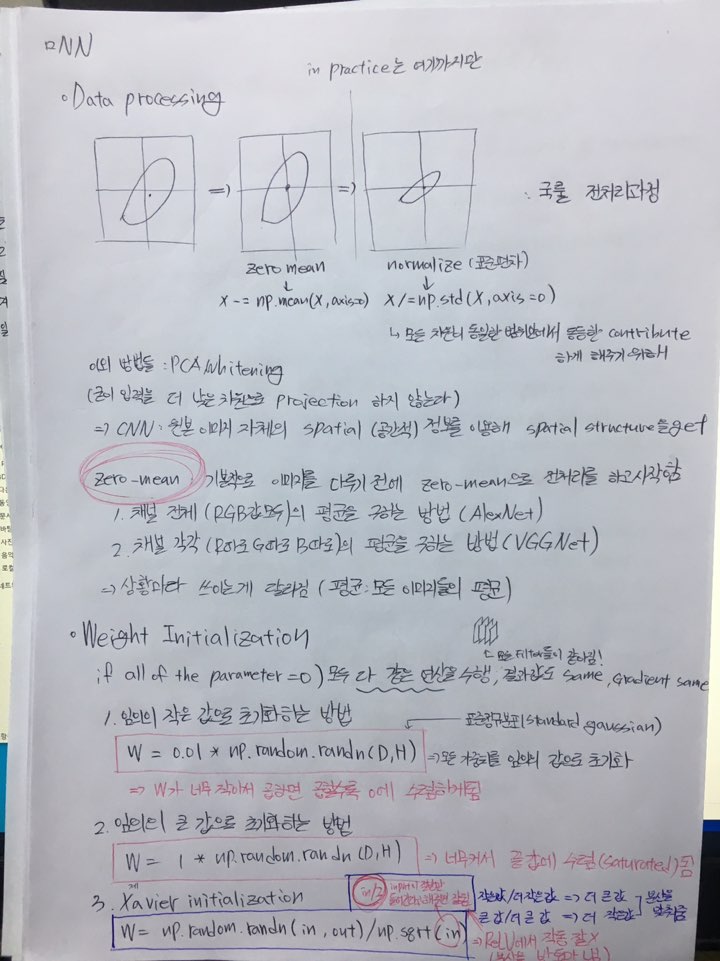 □NN
in practice는 여기까지만
◦Data processing
⇒ ⇒ : 국룰 전처리과정
zero mean normalize (표준편차)
↓ ↓
X -= np.mean(X, axis=0) X /= np.std(X, axis=0)
↳ 모든 차원이 동일한 범위안에서 동등한 contribute
하게 해주기 위해서
이외 방법들 : PCA/Whitening
(굳이 입력을 더 낮은 차원으로 projection 하지 않는다)
⇒ CNN : 원본 이미지 자체의 spatial (공간적) 정보를 이용해 spatial structure를 get
zero-mean : 기본적으로 이미지를 다루기 전에 zero-mean으로 전처리를 하고 시작함
1. 채널 전체 (RGB값 모두)의 평균을 구하는 방법 (AlexNet)
2. 채널 각각 (R따로 G따로 B따로)의 평균을 구하는 방법 (VGGNet)
⇒ 상황마다 쓰이는게 달라짐 (평균 : 모든 이미지들의 평균)
◦Weight Initialization
↳ 모든 Filter들이 같아짐!
if all of the parameter = 0) 모두 다 같은 연산을 수행, 결과값도 same, gradient same
1. 임의의 작은 값으로 초기화하는 방법
표준정규분포(standard gaussian)
W = 0.01 * np.random.randn(D,H) ⇒ 모든 가중치를 임의의 값으로 초기화
⇒ W가 너무 작아서 곱하면 곱할수록 0에 수렴하게됨
2. 임의의 큰 값으로 초기화하는 방법
W = 1 * np.random.randn(D,H) ⇒ 너무커서 끝값에 수렴(saturated)됨
3. Xavier initialization
in/2
작은값/더작은값 ⇒ 더 큰 값
큰 값/더큰값 ⇒ 더 작은값
분산을 맞춰줌
W = np.random.randn(in, out)/np.sqrt(in)
⇒ ReLU에서 작동 잘 X